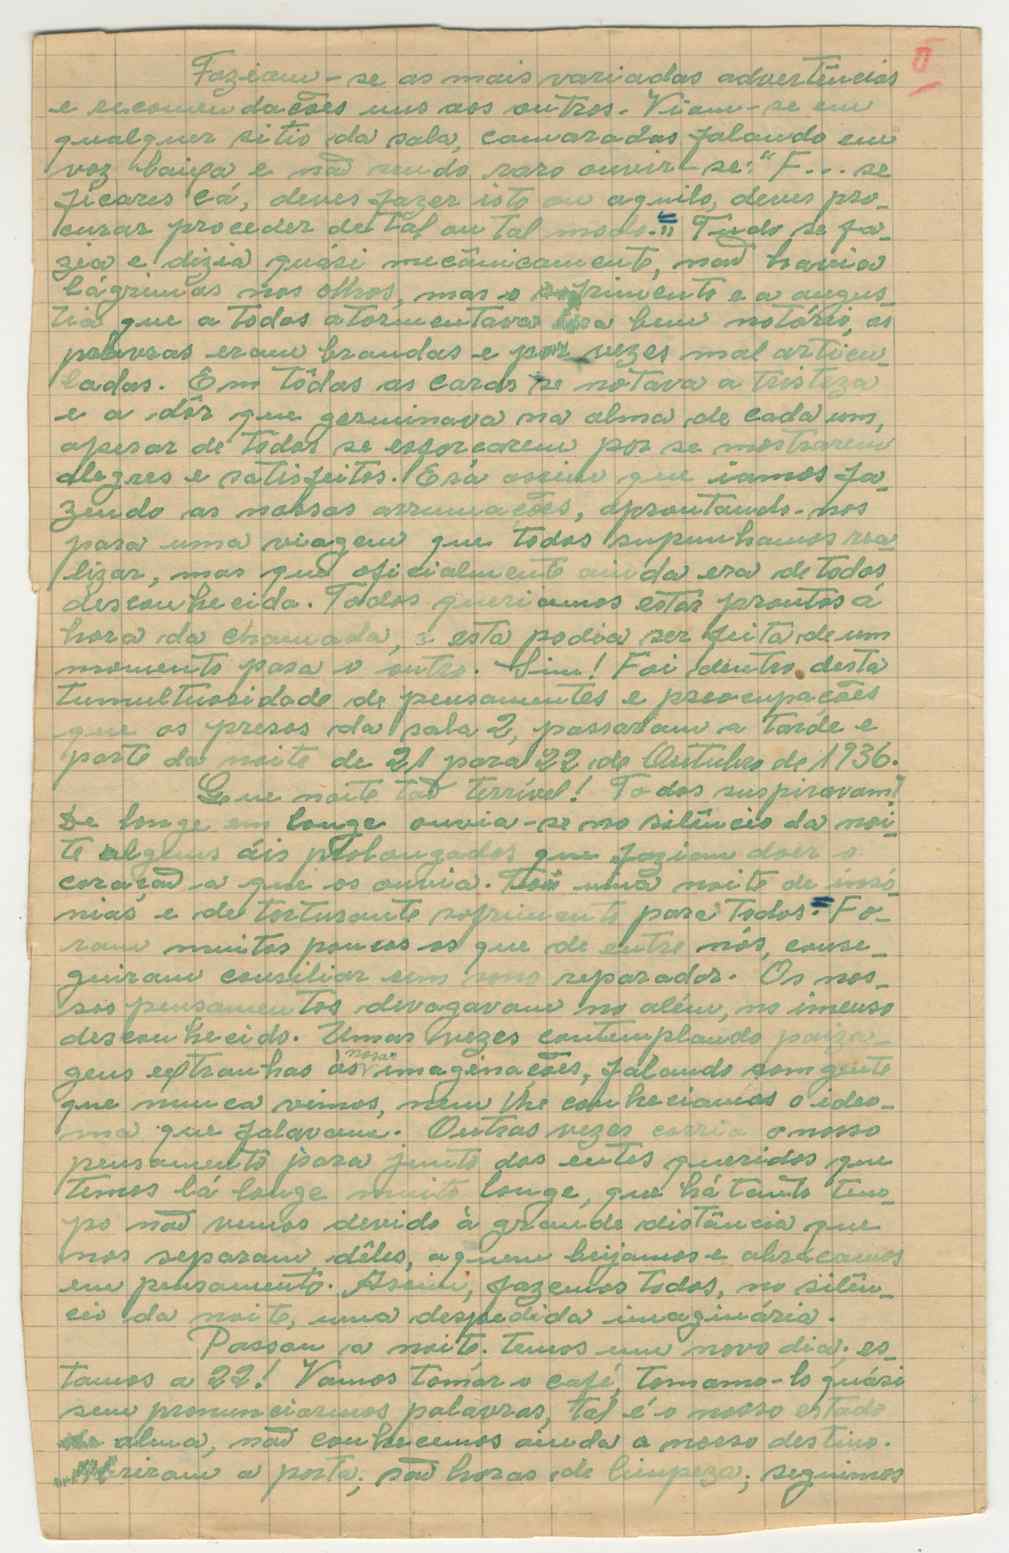 Faziam-se as mais variadas advertências
e recomendações uns aos outros. Viam-se em
qualquer sitio da sala, camaradas falando em
voz baixa e não sendo raro ouvir-se: "F... se
ficares cá, deves fazer isto ou aquilo, deves pro-
curar proceder de tal ou tal modo." Tudo se fa-
zia e dizia quási mecânicamente, não havia
lágrimas nos olhos, mas o sofrimento e a angus-
tia que a todos atormentava era bem notório, as
palavras eram brandas e por vezes mal articu-
ladas. Em tôdas as caras se notava a tristeza
e a dôr que germinava na alma de cada um,
apesar de todos se esforçarem por se mostrarem
alegres e satisfeitos. Era assim que iamos fa-
zendo as nossas arrumações, aprontando-nos
para uma viagem que todos supunhamos rea-
lizar, mas que oficialmente ainda era de todos
desconhecida. Todos queriamos estar prontos á
hora da chamada, e esta podia ser feita de um
momento para o outro. Sim! Foi dentro desta
tumultuosidade de pensamentos e preocupações
que os presos da sala 2, passaram a tarde e
parte da noite de 21 para 22 de Outubro de 1936.
Que noite tão terrível! Todos suspiravam!
De longe em longe ouvia-se no silêncio da noi-
te alguns áis prolongados que faziam doer o
coração a que os ouvia. Foi uma noite de insó-
nias e de torturante sofrimento para todos. Fo-
ram muitos poucos os que de entre nós, conse-
guiram consiliar um sono reparador. Os nos-
sos pensamentos devagavam no além, no imenso
desconhecido. Umas vezes contemplando paiza-
gens extranhas ás nossas imaginações, falando com gente
que nunca vimos, nem lhe conheciamos o ideo-
ma que falavam. Outras vezes corria o nosso
pensamento para junto dos entes queridos que
temos lá longe muito longe, que há tanto tem-
po não vemos devido à grande distância que
nos separam dêles, a quem beijamos e abraçamos
em pensamento. Assim, fazemos todos, no silên-
cio da noite, uma despedida imaginária.
Passou a noite. temos um novo dia; es-
tamos a 22! Vamos tomár o café, tomamo-lo quási
sem pronunciarmos palavras, tal é o nosso estado
de alma, não conhecemos ainda o nosso destino.
Abriram a porta; são horas de limpeza; seguimos